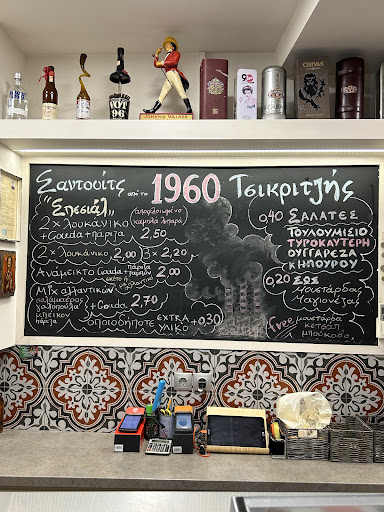 CHIVAS
JOHNNIE WALKER
Σαντουϊτς από το 1960 Τσικριτζής
"Σπεσιάλ"
2 × λουκάνικο
+ Gouda + πάριζα 2,50
2 × λουκάνικο 2,00 3 × 2,20
Ανάμεικτο Gouda + πάριζα 2,00
Μιξ αλλαντικών
σαλάμι αέρος
γαλοπούλα
μπέικον
πάριζα
+ Gouda 2,70
οποιοδήποτε EXTRA ΥΛΙΚΟ + 0,30
0,40 ΣΑΛΑΤΕΣ
ΤΟΥΛΟΥΜΙΣΙΟ
ΤΥΡΟΚΑΥΤΕΡΗ
ΟΥΓΓΑΡΕΖΑ
ΚΗΠΟΥΡΟΥ
0,20 ΣΩΣ
Μουστάρδας
Μαγιονέζας
Free
μουστάρδα
κέτσαπ
μπούκοβο